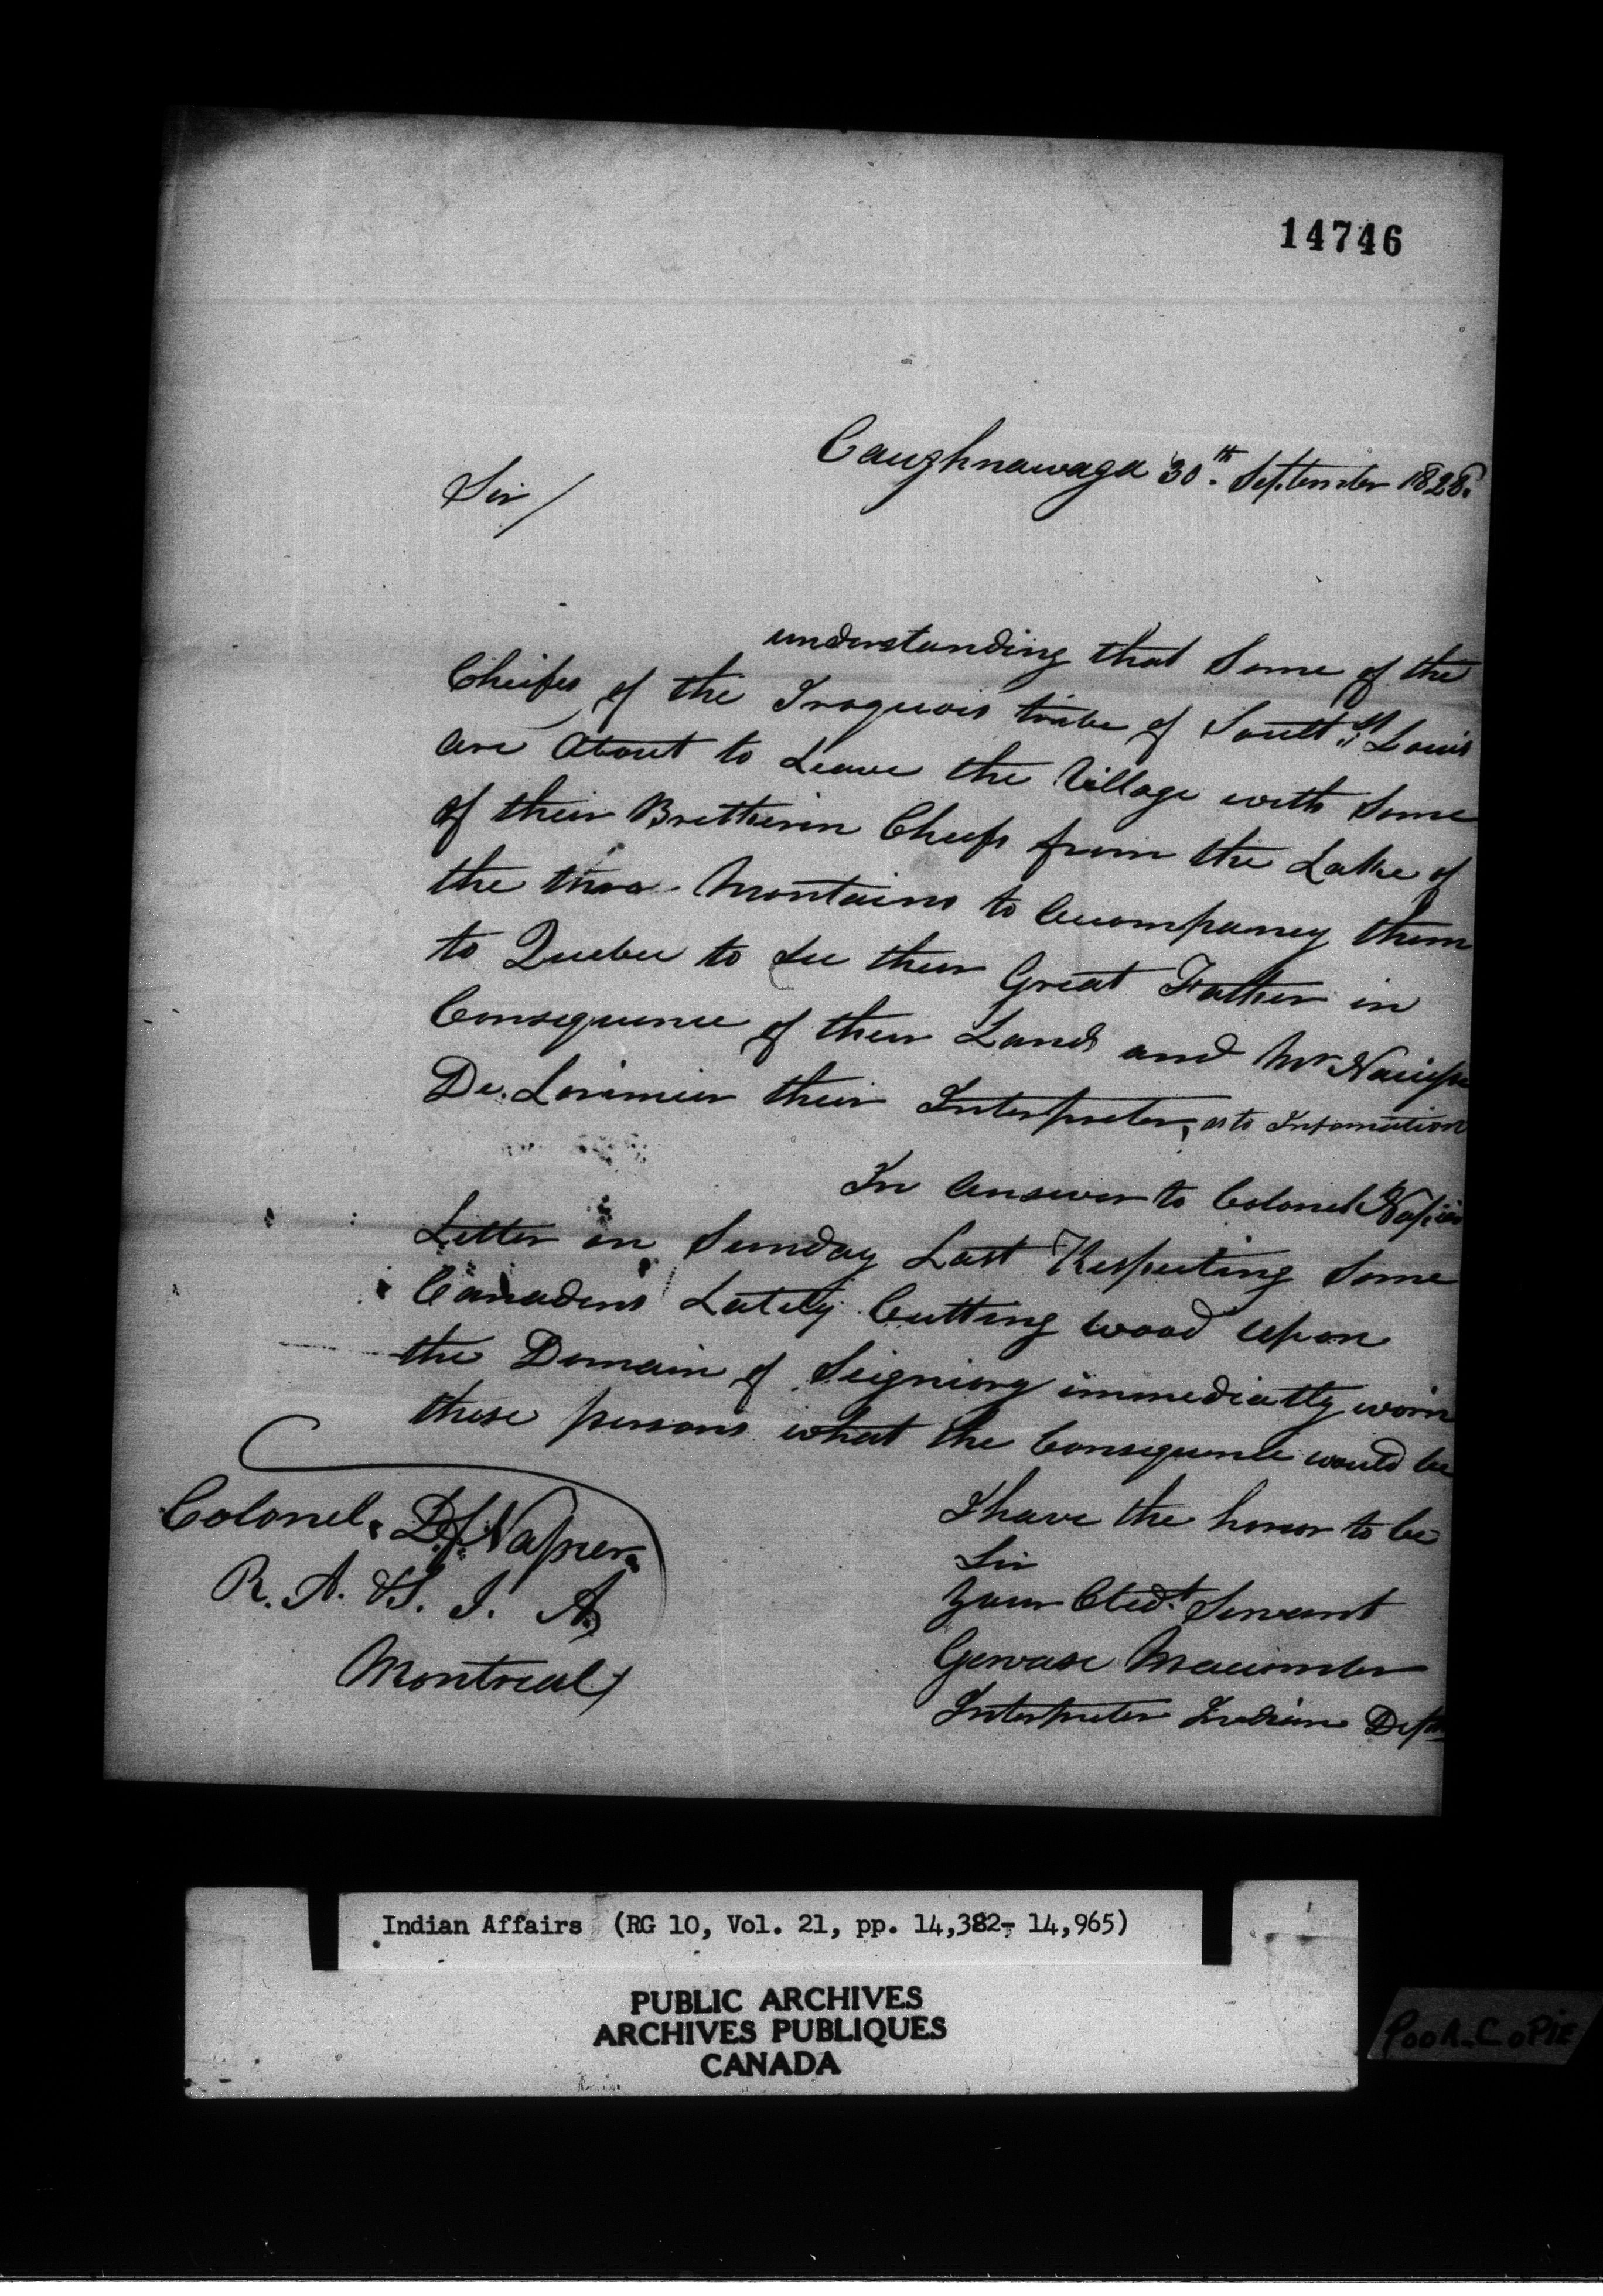 14746
Caughnawaga 30th. September 1828.
Sir/
understanding that Some of the
Cheifes of the Iroquois tribe of Soult St Louis
are About to Leave the Village with Some
of their Bretherin Cheefs from the Lake of
the two Montains to Accompaney them
to Quebec to See their Great Father in
Consequence of their Land and Mr
De. Lorimier their Interpreter, as to Information
In Answer to Colonel Napier
Letter on Sunday Last Respecting Some
Canadens Lately Cutting wood upon
the Domain of Seigniory immediatly worn
these persons what the Consequence would be
I have the honor to be
Sir
Your Obed.t Servant
Gervase Macomber
Interpreter Indian Dept
Colonel. D. Napier.
R. A. & S. I. A
Montreal
Indian Affairs (RG 10, Vol. 21, pp. 14,382- 14,965)
PUBLIC ARCHIVES
ARCHIVES PUBLIQUES
CANADA
POOR-COPIE